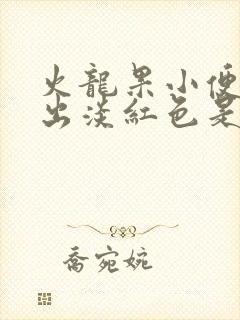 火龍果小便
出淡紅色是
喬宛婉